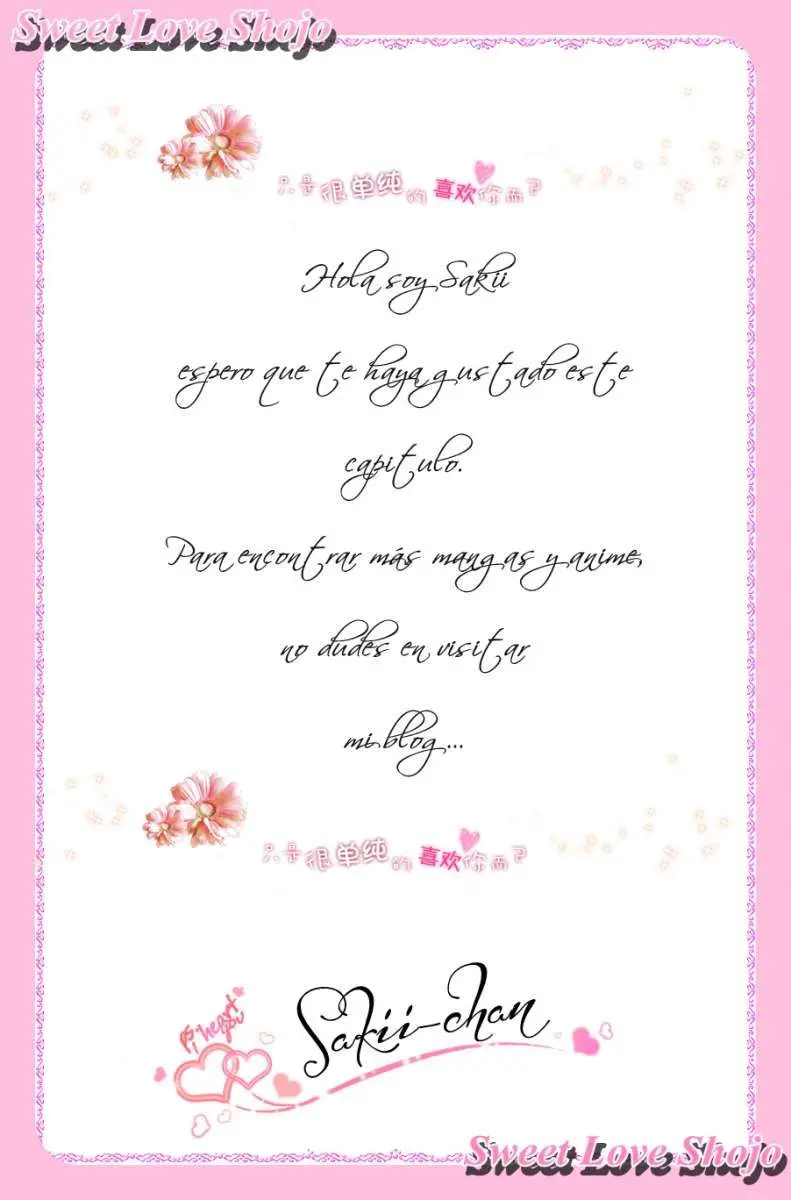 Sweet Love Shojo
Sweet Love Shojo
只是很单纯的喜欢你而已
Hola soy Sakii
espero que te haya gustado este
capitulo.
Para encontrar más mangas y anime,
no dudes en visitar
mi blog...
只是很单纯的喜欢你而已
heart
you
Sakii-chan
Sweet Love Shojo